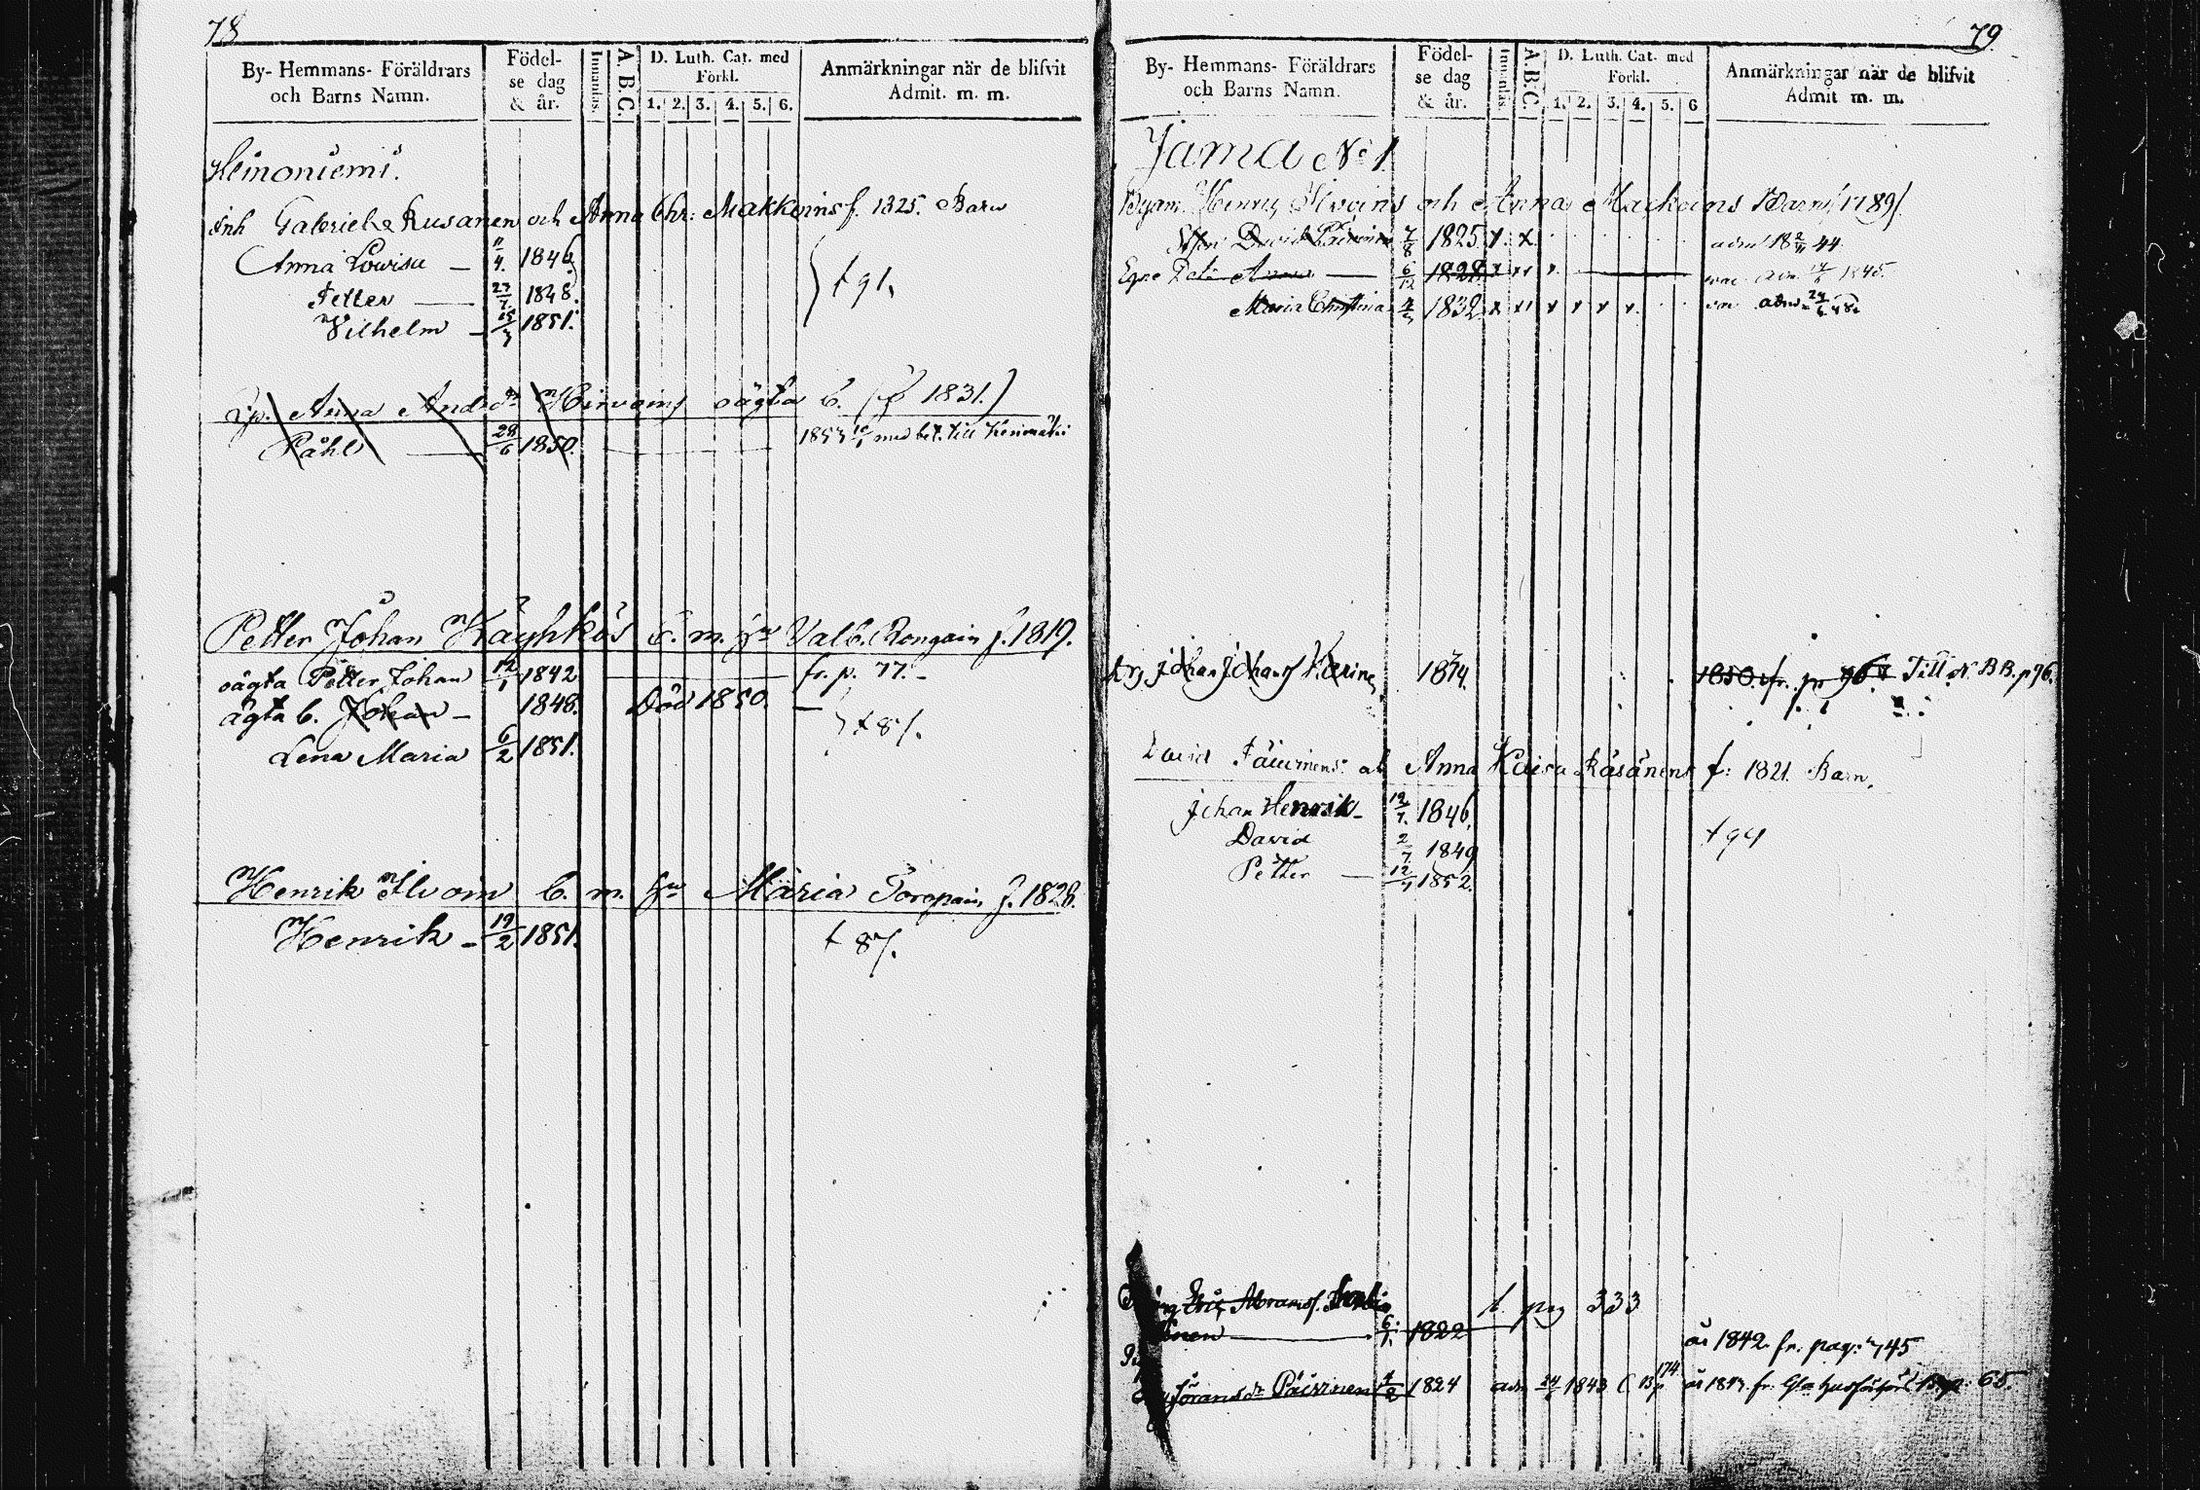 78
By- Hemmans- Föräldrars
och Barns Namn.
Födel-
se dag
& år.
Innanläs.
A. B. C.
D. Luth. Cat. med
Förkl.
1. 2. 3. 4. 5. 6.
Anmärkningar när de blifvit
Admit. m. m.
Heinoniemi.
Inh Gabriel Rusanen och Anna Chr: Makkoins f. 1825. Barn
Anna Lowisa — 11/4. 1846
Petter — 27/7. 1848.
Wilhelm — 15/3 1851.
} t 91,
Anna And:dr Hirvoins oägta b. (f 1831.)
Påhl — 28/6 1850. 1853 med bet. till
Petter Johan Käyhkös b. m. hu Valb. Rongain f. 1819.
oägta Petter Johan 12/1 1842 fr. p. 77.
ägta b. Johan — 1848. Död 1850. —
} t 87.
Lena Maria 6/2 1851.
Henrik Ilvoin b. m. hu Maria Toropain f. 1828.
Henrik — 19/2 1851. t 87.
79.
By- Hemmans- Föräldrars
och Barns Namn.
Födel-
se dag
& år.
Innanläs.
A. B. C.
D. Luth. Cat. med
Förkl.
1. 2. 3. 4. 5. 6
Anmärkningar när de blifvit
Admit m. m.
Jama No 1.
Henric Ilvoins och Anna Mackoins Barn (1789).
David 7/8 1825 x x adm 44.
Anna — 6/12 1828 x x x 1845.
Maria Christina 1832 x x x x x x adm 24/6 48.
Johan Johans 1834. 1850 fr. p 96 Till N. BB. p 96.
David Päivinens o Anna Kaisa Räsänens f: 1821. Barn,
Johan Henrik — 19/7. 1846.
David 2/7. 1849
t 94
Petter — 12/7 1852.
Eric Abramss. t. pag 333
nen — 6/1. 1822
år 1842 fr. pag: 745
Göransdr Päivinen 4/2 1824 adm 24/6 1843 år 1843 fr. Gla p: 65.